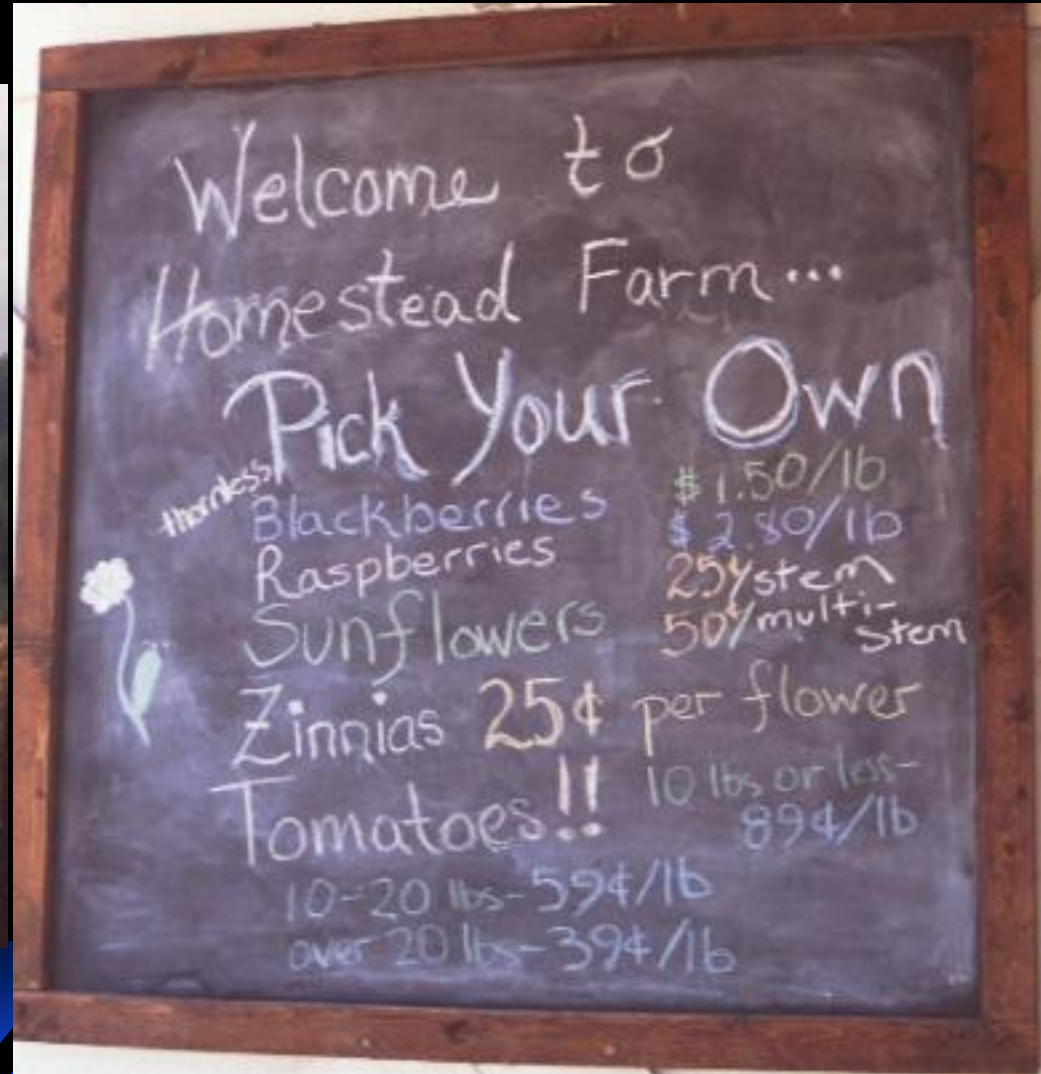 Welcome to
Homestead Farm...
Pick Your Own
thornless Blackberries $1.50/lb
Raspberries $2.80/lb
Sunflowers 25¢/stem
50¢/multi-
stem
Zinnias 25¢ per flower
Tomatoes!! 10 lbs or less-
89¢/lb
10-20 lbs-59¢/lb
over 20 lbs-39¢/lb